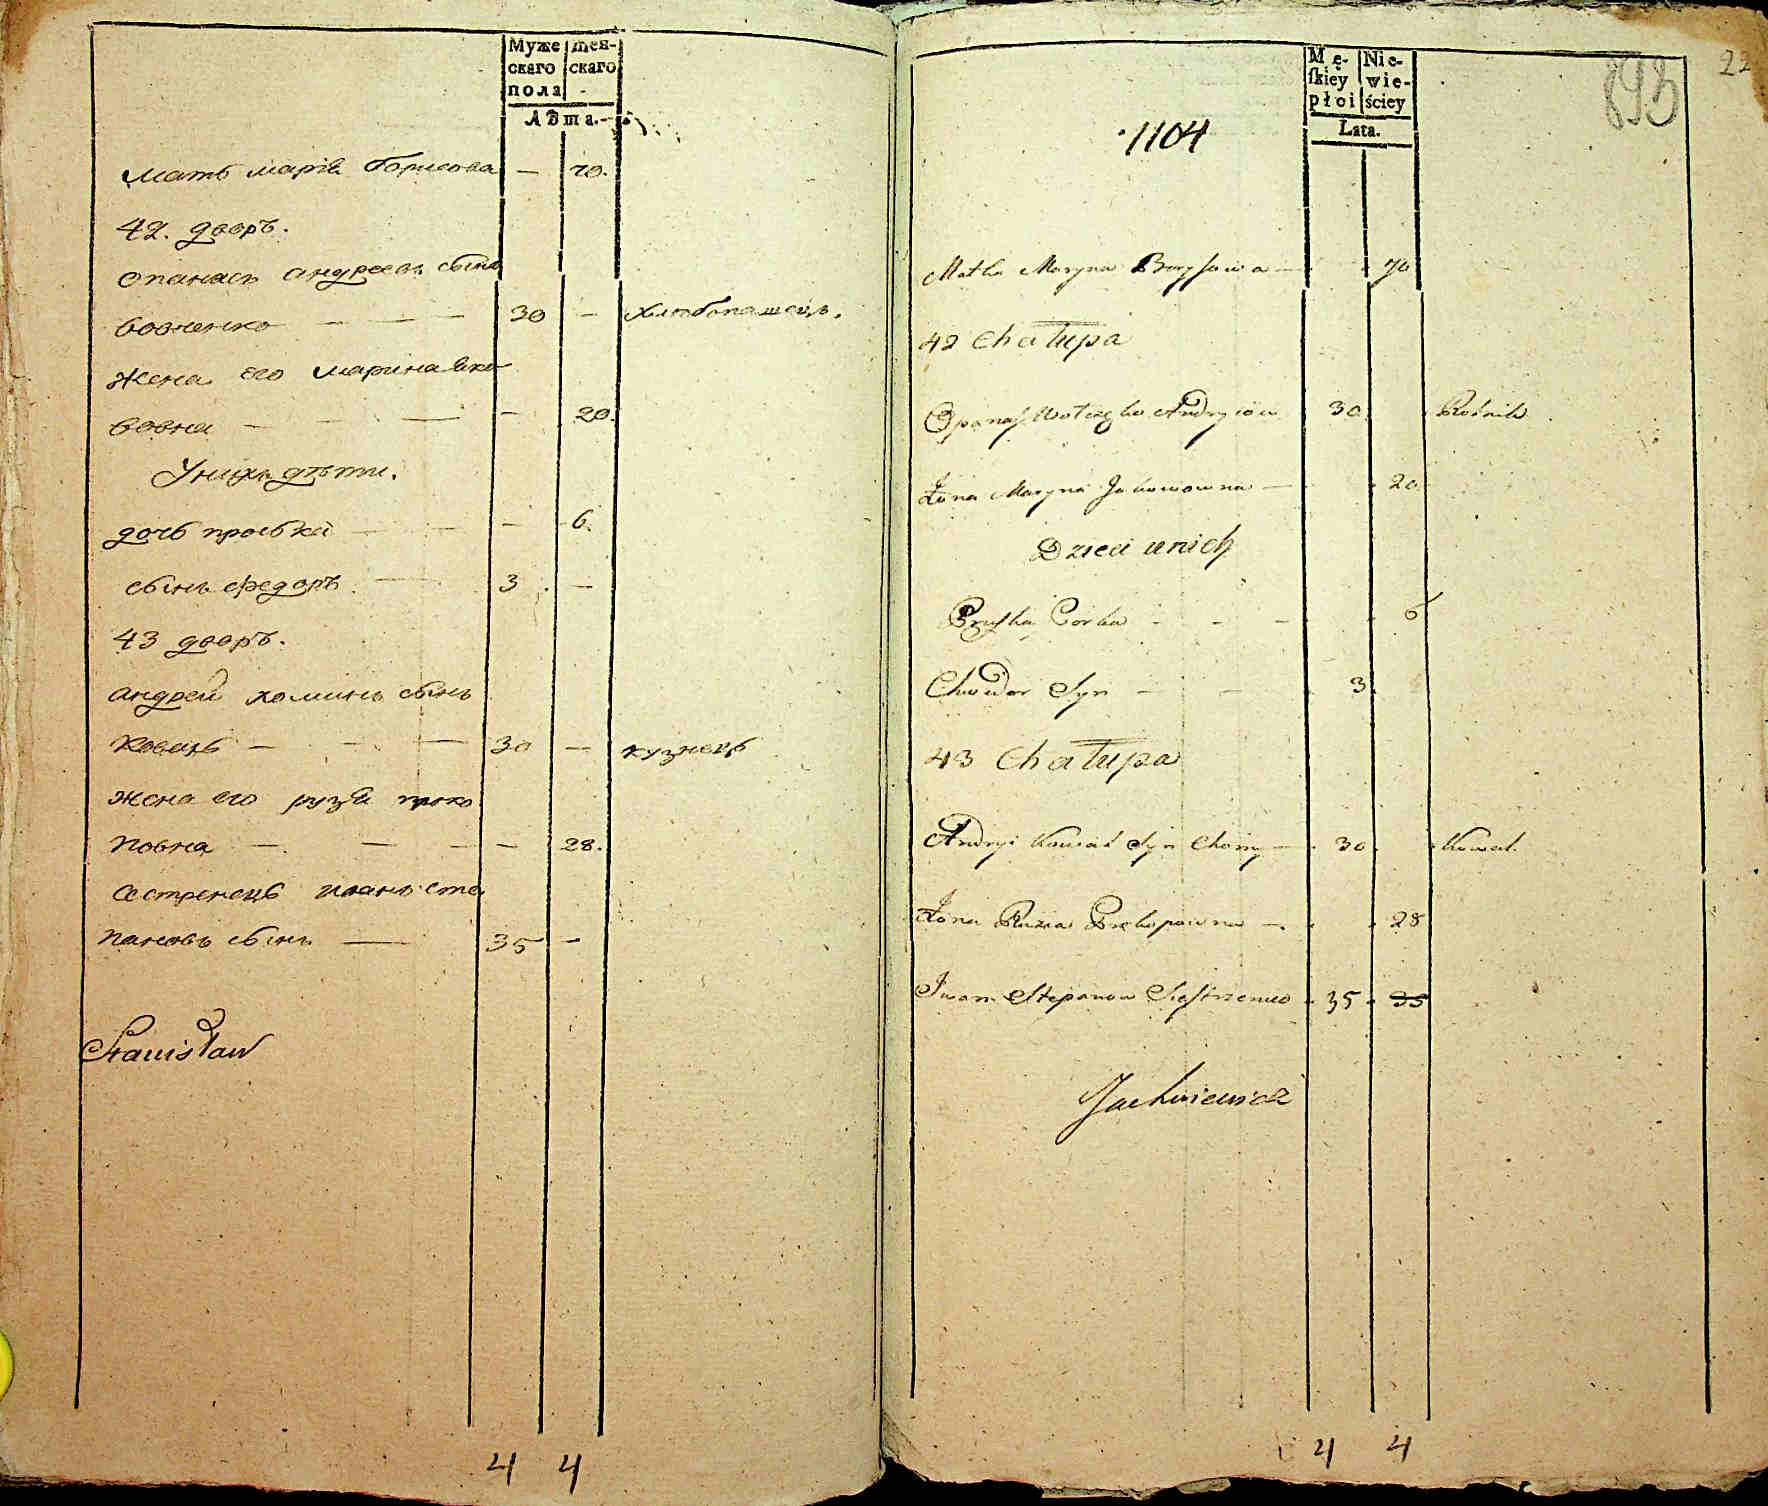 Муже
скаго
пола
жен-
скаго
Лѣта.
Мать марія борисова — 70.
42. дворъ.
опанасъ андреевъ сынъ
вовченко — — — 30 — хлѣбопашецъ.
жена его марина яко
вовна — — — — 20.
У нихъ дѣти.
дочь проська — — — 6.
сынъ федоръ — 3 . —
43 дворъ.
андрей хоминъ сынъ
коваль — — — 30 — кузнецъ
жена его рузя проко
повна — — — — 28.
сестренецъ иванъ сте
пановъ сынъ — 35 —
Stanisław
4 4
893
22
Mę-
skiey
płci
Nie-
wie-
ściey
Lata.
1104
Matka Maryna Borysowa — 70
42 Chałupa
Opanas Andryiow 30 Rolnik
Żona Maryna Jakowowna — 20
Dzieci u nich
Pruska Corka - - - 6
Chwedor Syn - - 3
43 Chałupa
Andryi Kowal Syn Chomy — 30 Kowal.
Żona Ruzia Prokopowna — 28
Iwan Stepanow Siestrzeniec 35 35
Jachniewicz
4 4